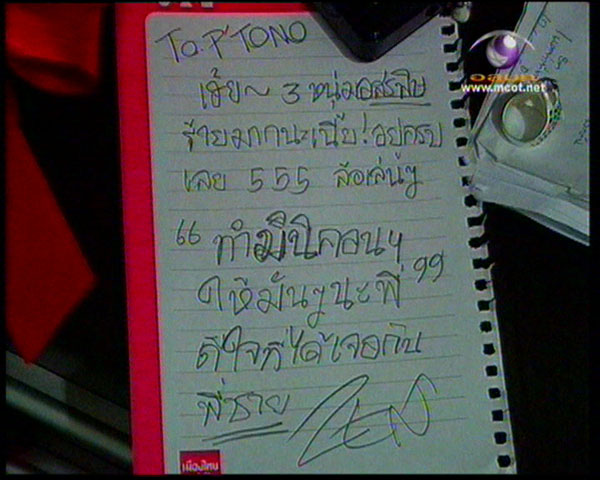 To. P'TONO
เฮ้ย~ 3 หนุ่ม
ร้ายมากนะเนี่ย!
เลย 555 ล้อเล่นๆ
“ทำมินิคอนๆ
ให้มันๆนะพี่”
ดีใจที่ได้เจอกัน
พี่ชาย
เมืองไทย
อสมท
www.mcot.net